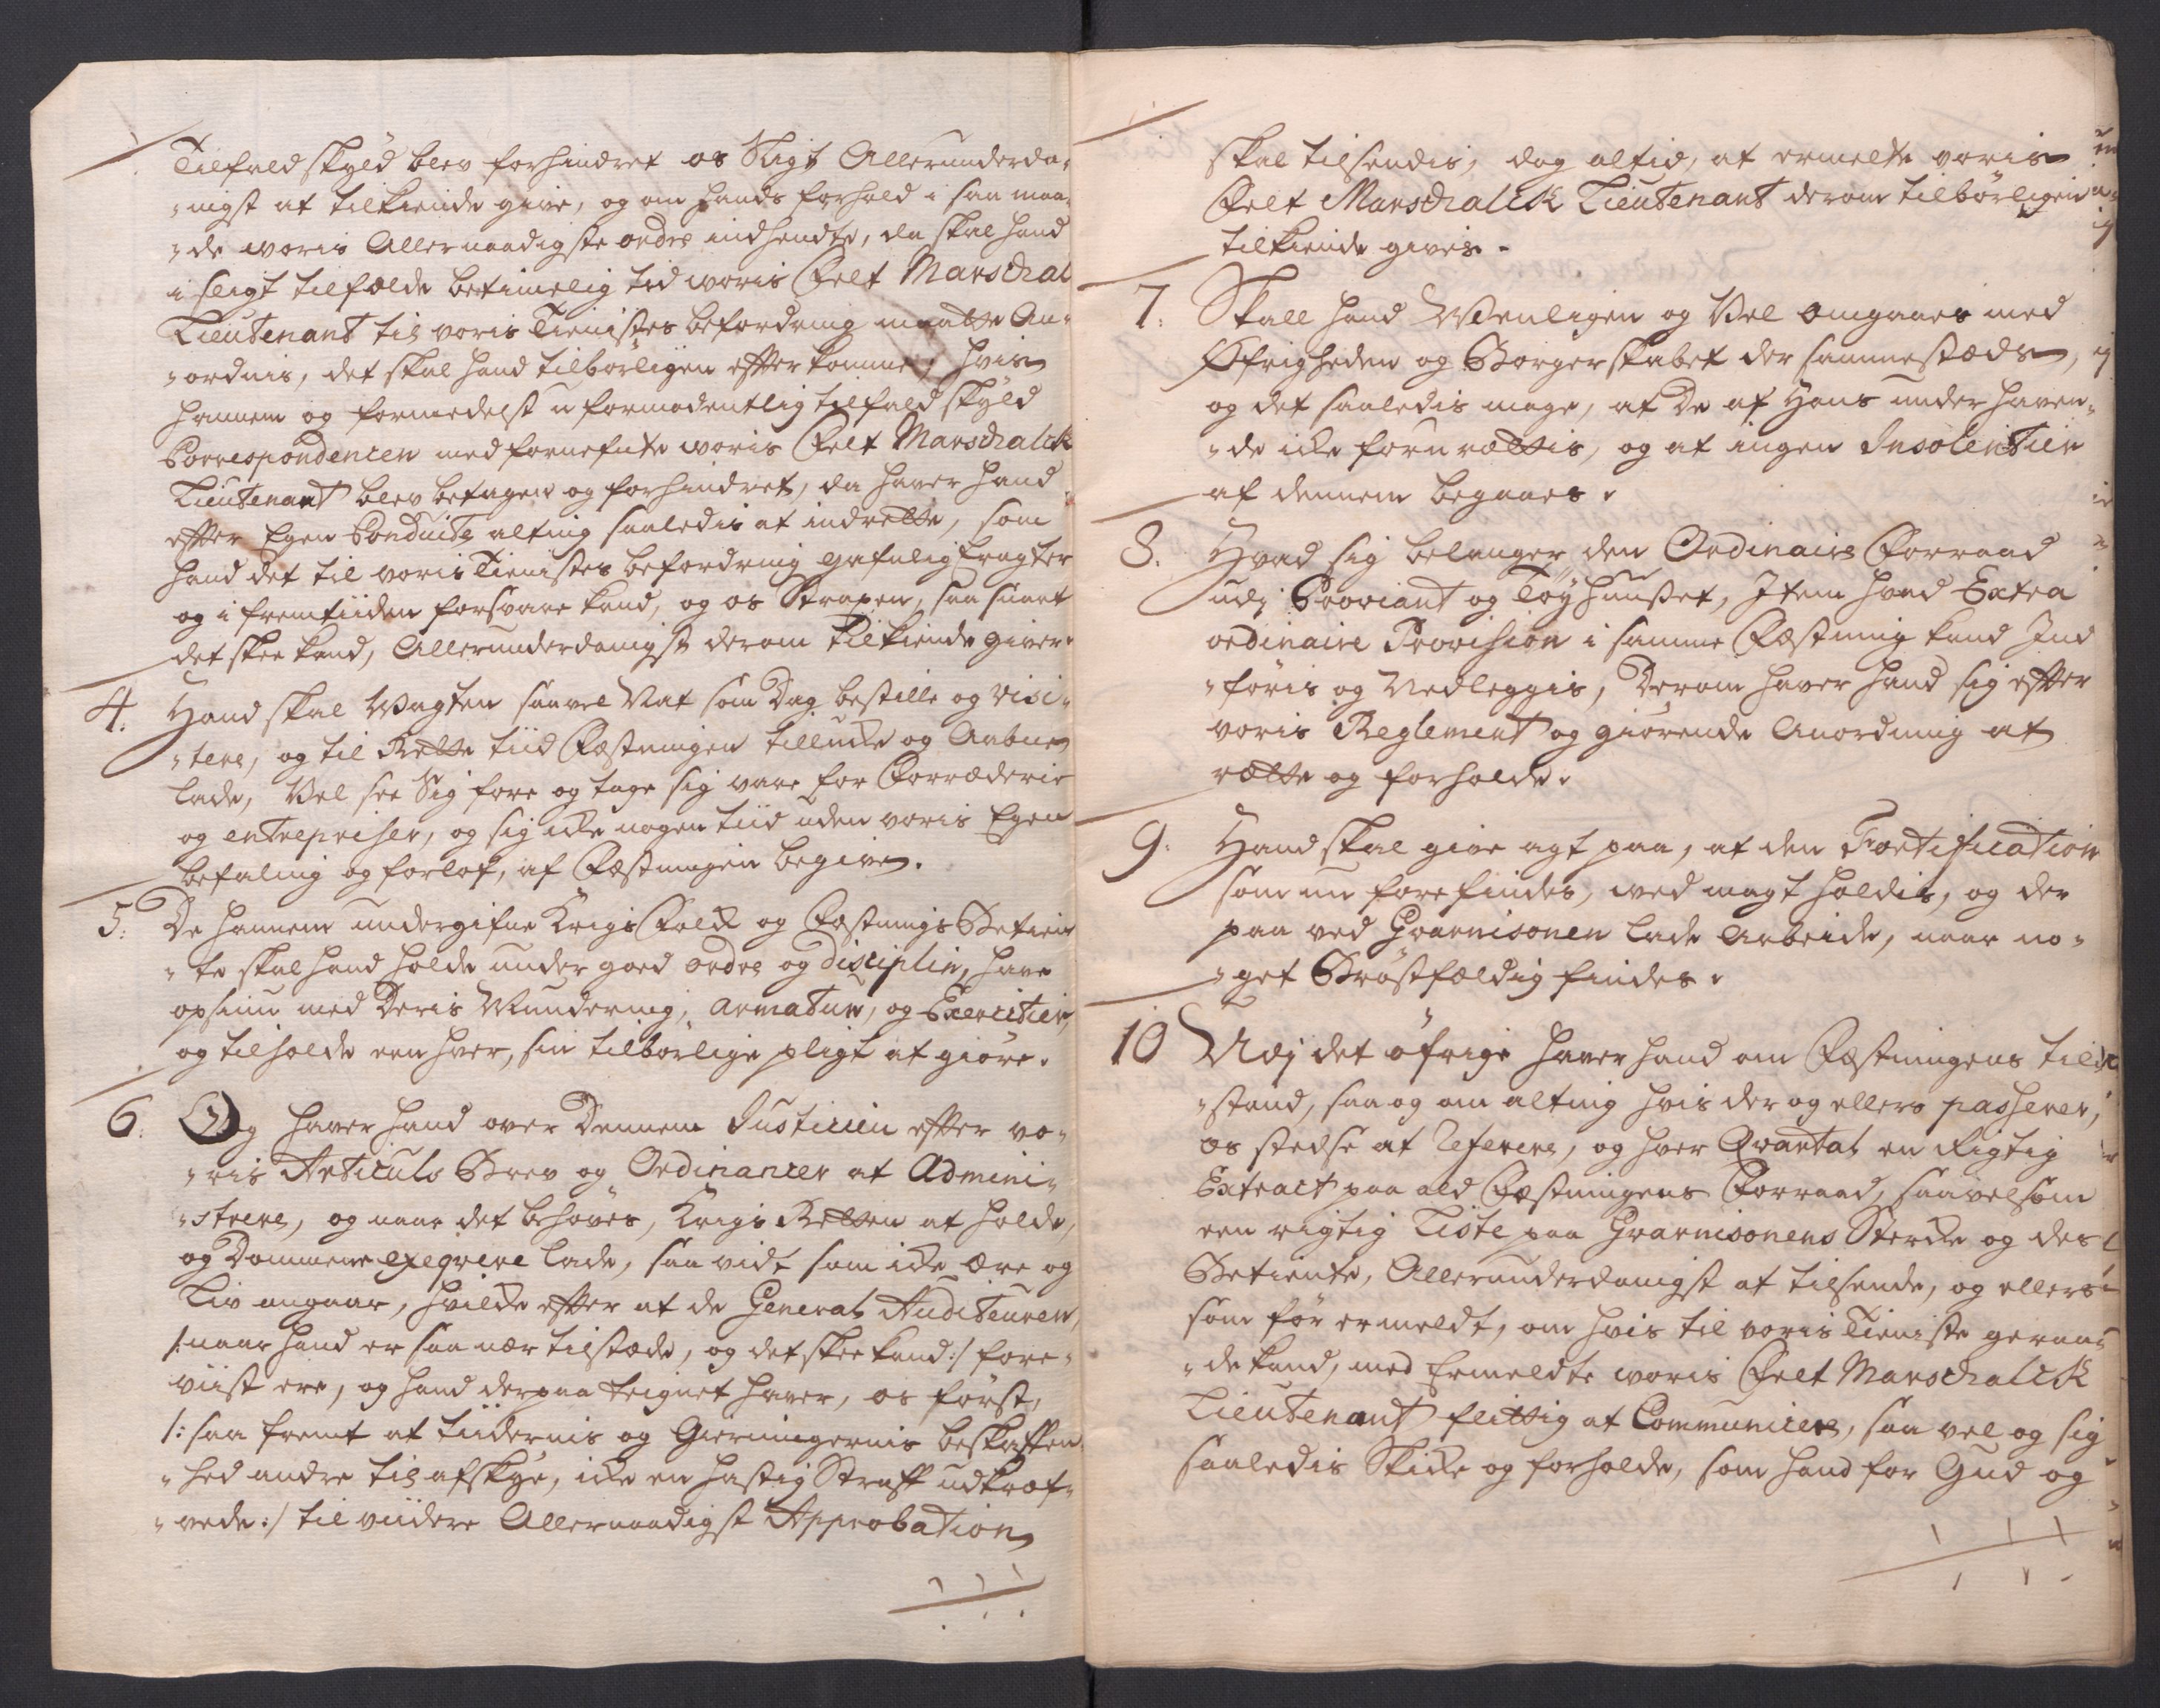 Tilfald skyld blev forhindret os Sligt Allerunderda-
-nigst at tilkiende give, og om hands forhold i saa maa-
-de woris Allernaadigste ordre indhendte, da skal hand
i sligt tilfælde betimelig ved woris Felt Marschal
Lieutenant til voris Tienistes befordring maatte An-
-ordnis, det skal hand tilbörligen efterkomme, hvis
hannem og formedelst uformodentlig tilfald skyld
Correspondencen med fornefnte woris Felt Marschalck
Lieutenant blev betagen og forhindret, da haver hand
efter Egen Conduite alting saaledis at indrette, som
hand det til voris Tienistes befordring gafnlig Eragter
og i fremtiiden forsvare kand, og os Straxen, saa snart
det skee kand, Allerunderdanigst derom tilkiende giver.
4. Hand skal Wagten saavel Nat som Dag bestille og visi-
-tere, og til Rette tiid Fæstningen tillucke og Aabne
lade, Vel see Sig fore og tage sig vare for Forræderie
og entrepriser, og sig icke nogen tiid uden voris Egen
befaling og forlof, af Fæstningen begive.
5. De hannem undergifne Krigs Folck og Fæstnings Betien-
-te skal hand holde under goed ordre og disciplin, have
opsiun med Deris Mundering, armatur, og Exercitier,
og tilholde een hver, sin tilbörlige pligt at giöre.
6. Og haver hand over Dennem Justicien efter vo-
-ris Articuls Brev og Ordinancer at Admini-
-strere, og naar det behöves, Krigs Retten at holde,
og Dommene exeqvere lade, saa vidt som icke Ære og
Liv angaar, hvilcke efter at de General Auditeuren,
/:naar hand er saa nær tilstæde, og det skee kand:/ fore-
viist ere, og hand derpaa teignet haver, os först,
/:saa fremt at tiidernis og Gierningernis beskaffen-
-hed andre til afskye, icke en hastig Straff udkræf-
-vede:/ til viidere Allernaadigst Approbation
skal tilsendis, dog altid, at ermelte voris
Felt Marschalck Lieutenant derom tilbörligen
tilkiende gives.
7. Skall hand Wenligen og Vel omgaaes med
Øfrigheden og Borgerskabet der sammestæds,
og det saaledis mage, at De af Hans underhaven-
-de icke forurættis, og at ingen Insolentier
af dennem begaaes.
8. Hvad sig belanger den Ordinaire Forraad
udj Proviant og Töyhuuset, Item hvad Extra
ordinaire Provision i samme Fæstning kand Ind
-föris og Nedleggis, Derom haver hand sig efter
voris Reglement og giörende Anordning at
rætte og forholde.
9. Hand skal give agt paa, at den Fortification
som nu forefindes, ved magt holdis, og der
paa ved Guarnisonen lade arbeide, naar no-
-get Bröstfældig findes.
10 Udj det öfrige haver hand om Fæstningens til-
-stand, saa og om alting hvis der og ellers passerer,
os stedse at referere, og hver Qvartal en Rigtig
Extract paa ald Fæstningens Forraad, saavelsom
een rigtig Liste paa Guarnisonens Stercke og des
Betiente, Allerunderdanigst at tilsende, og ellers
som för ermeldt, om hvis til voris Tieniste geraa-
-de kand, med Ermeldte woris Felt Marschalck
Lieutenant flittig at Communicere, saa vel og sig
saaledis Skicke og forholde, som hand for Gud og